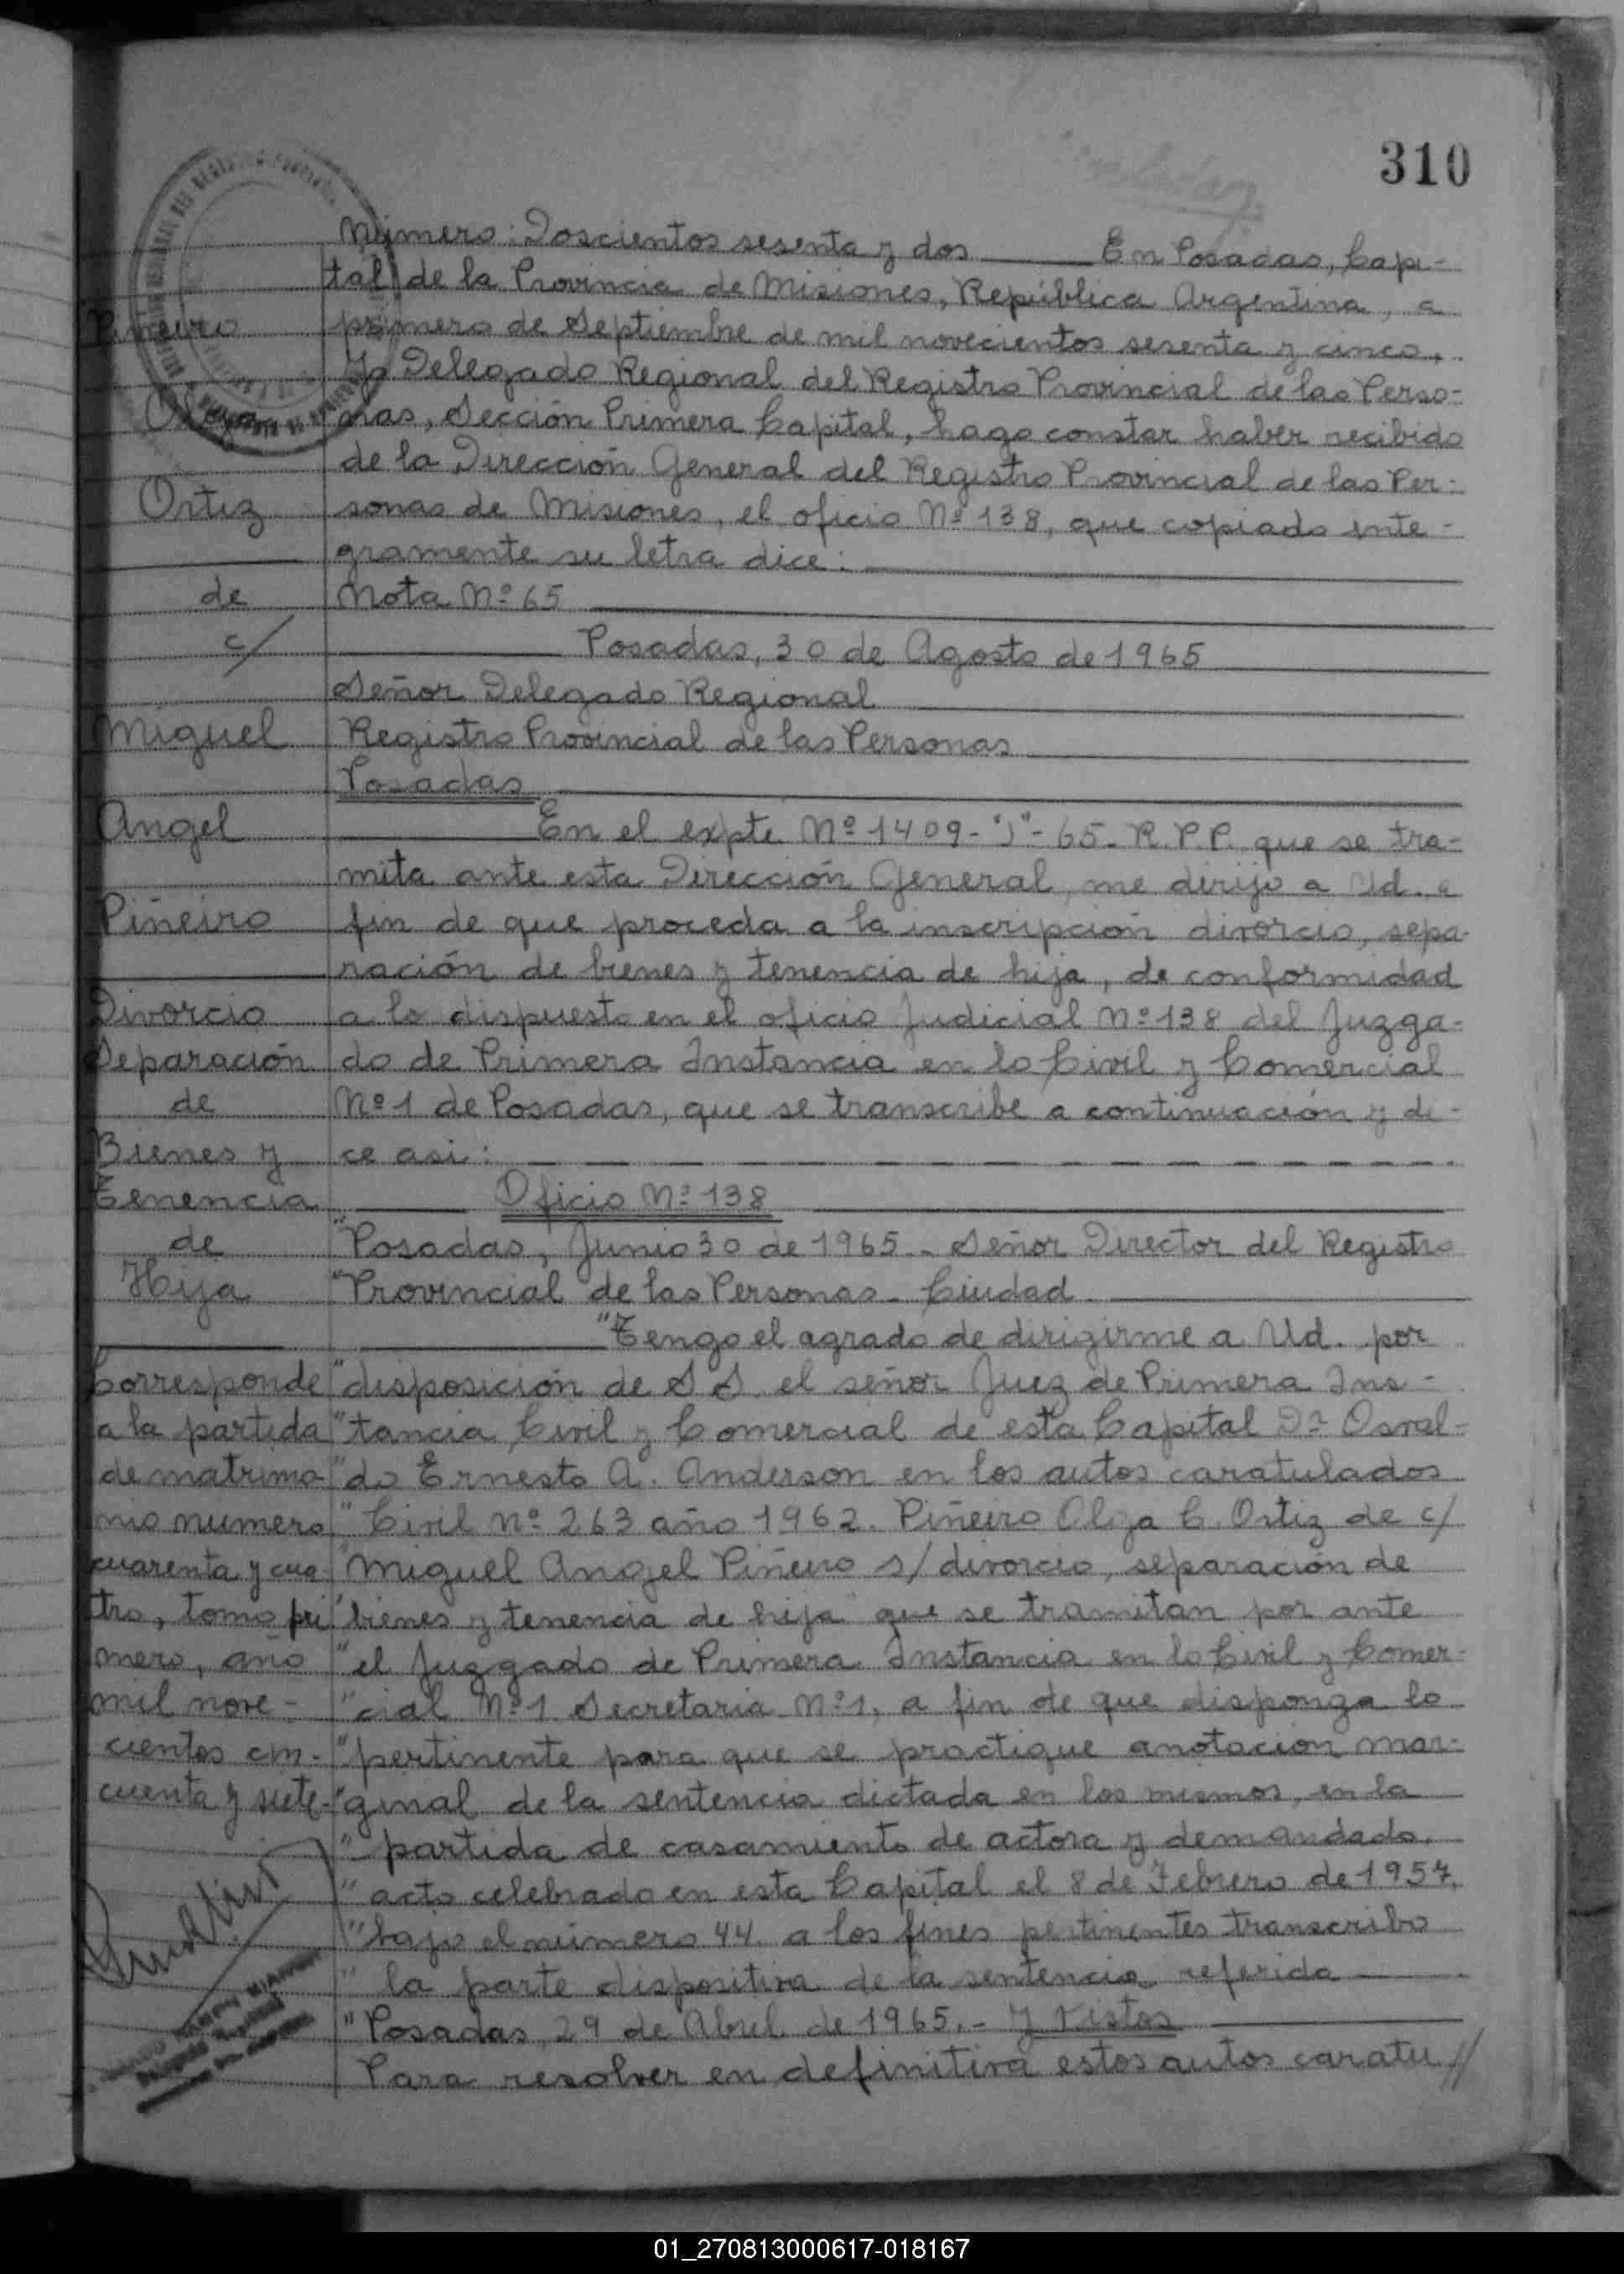 310
Número: Doscientos sesenta y dos ——— En Posadas, Capi-
tal de la Provincia de Misiones, República Argentina, a
primero de Septiembre de mil novecientos sesenta y cinco,
Yo Delegado Regional del Registro Provincial de las Perso-
nas, Sección Primera Capital, hago constar haber recibido
de la Dirección General del Registro Provincial de las Per-
sonas de Misiones, el oficio Nº 138, que copiado inte-
gramente su letra dice:
Nota Nº 65
Posadas, 30 de Agosto de 1965
Señor Delegado Regional
Registro Provincial de las Personas
Posadas
En el expte Nº 1409-"J"-65-R.P.P. que se tra-
mita ante esta Dirección General, me dirijo a Ud. a
fin de que proceda a la inscripción divorcio, sepa-
ración de bienes y tenencia de hija, de conformidad
a lo dispuesto en el oficio Judicial Nº 138 del Juzga-
do de Primera Instancia en lo Civil y Comercial
Nº 1 de Posadas, que se transcribe a continuación y di-
ce asi:
Oficio Nº 138
"Posadas, Junio 30 de 1965.- Señor Director del Registro
"Provincial de las Personas- Ciudad
"Tengo el agrado de dirigirme a Ud. por
"disposición de S S. el señor Juez de Primera Ins-
"tancia Civil y Comercial de esta Capital Dr Osval-
"do Ernesto A. Anderson en los autos caratulados
"Civil Nº 263 año 1962. Piñeiro Olga C. Ortiz de c/
"Miguel Angel Piñeiro s/ divorcio, separación de
"bienes y tenencia de hija" que se tramitan por ante
"el Juzgado de Primera Instancia en lo Civil y Comer-
"cial Nº 1 Secretaria Nº 1, a fin de que disponga lo
"pertinente para que se practique anotación mar-
"ginal de la sentencia dictada en los mismos, en la
"partida de casamiento de actora y demandado,
"acto celebrado en esta Capital el 8 de Febrero de 1957,
"bajo el número 44. a los fines pertinentes transcribo
"la parte dispositiva de la sentencia referida
"Posadas, 29 de Abril de 1965.- Y Vistos
Para resolver en definitiva estos autos caratu//
Piñeiro
Olga
Ortiz
de
c/
Miguel
Angel
Piñeiro
Divorcio
Separación
de
Bienes y
Tenencia
de
Hija
Corresponde
a la partida
de matrimo-
nio numero
cuarenta y cua-
tro, tomo pri
mero, año
mil nove-
cientos cin-
cuenta y siete-
01_270813000617-018167